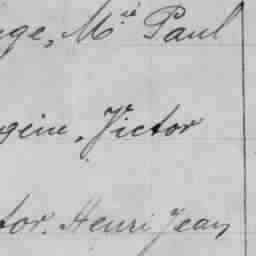 nge, M.ce Paul
gein, Victor
tor. Henri Jean